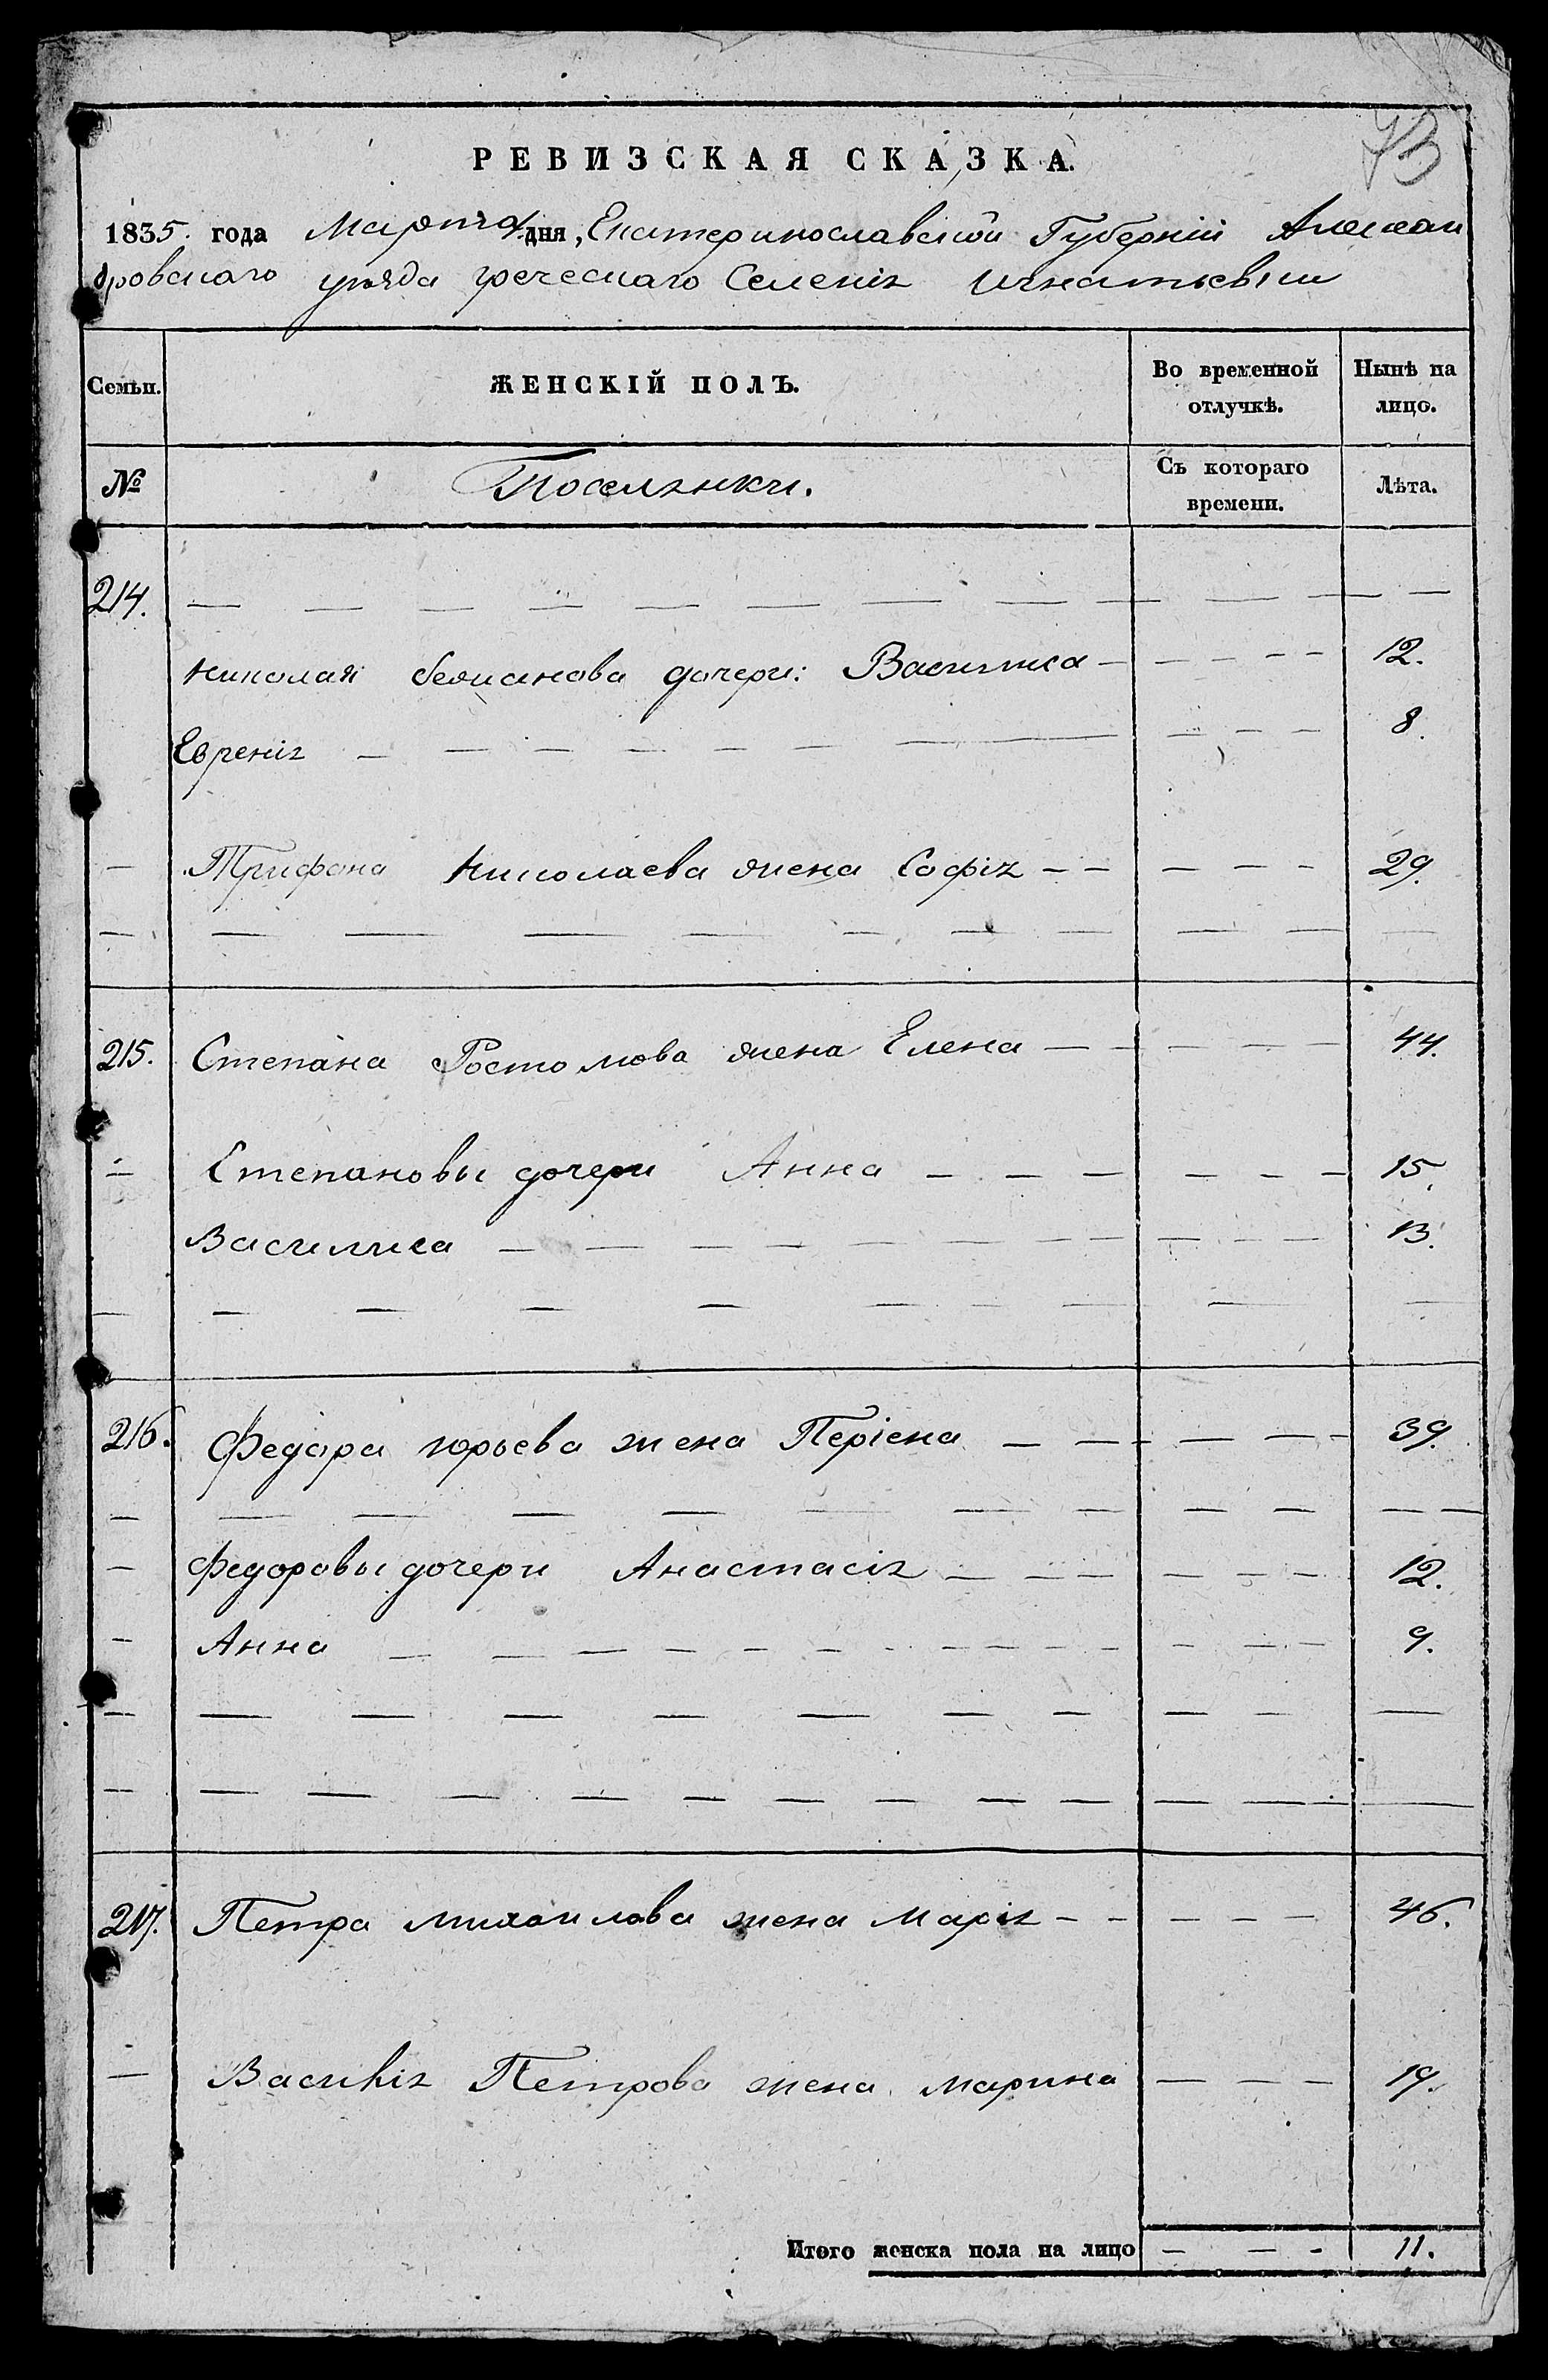 73
РЕВИЗСКАЯ СКАЗКА.
1835. года Марта дня, Екатеринославской Губерніи Алексан
дровскаго уѣзда греческаго Селенія Игнатьевки
Семьи. ЖЕНСКІЙ ПОЛЪ. Во временной отлучкѣ. Нынѣ на лицо.
№ Поселянки. Съ котораго времени. Лѣта.
214. — — — — — — — — — — — —
Николая дочери: Василиса — — — — — 12.
Евгенія — — — — — — — — — — 8.
— Трифона Николаева жена Софія — — — — — 29.
— — — — — — — — — — —
215. Степана Ростомова жена Елена — — — — — 44.
— Степановы дочери Анна — — — — — — 15.
Василиса — — — — — — — — — — — 13.
— — — — — — — — — —
216. Федора юрьева жена — — — — — 39.
— — — — — — — — — — — —
— Федоровы дочери Анастасія — — — — — — 12.
— Анна — — — — — — — — — — — — — 9.
— — — — — — — — — — —
— — — — — — — — — — — — —
217. Петра михаилова жена Марія — — — — — 46.
— Василія Петрова жена марина — — — 19.
Итого женска пола на лицо — — - 11.